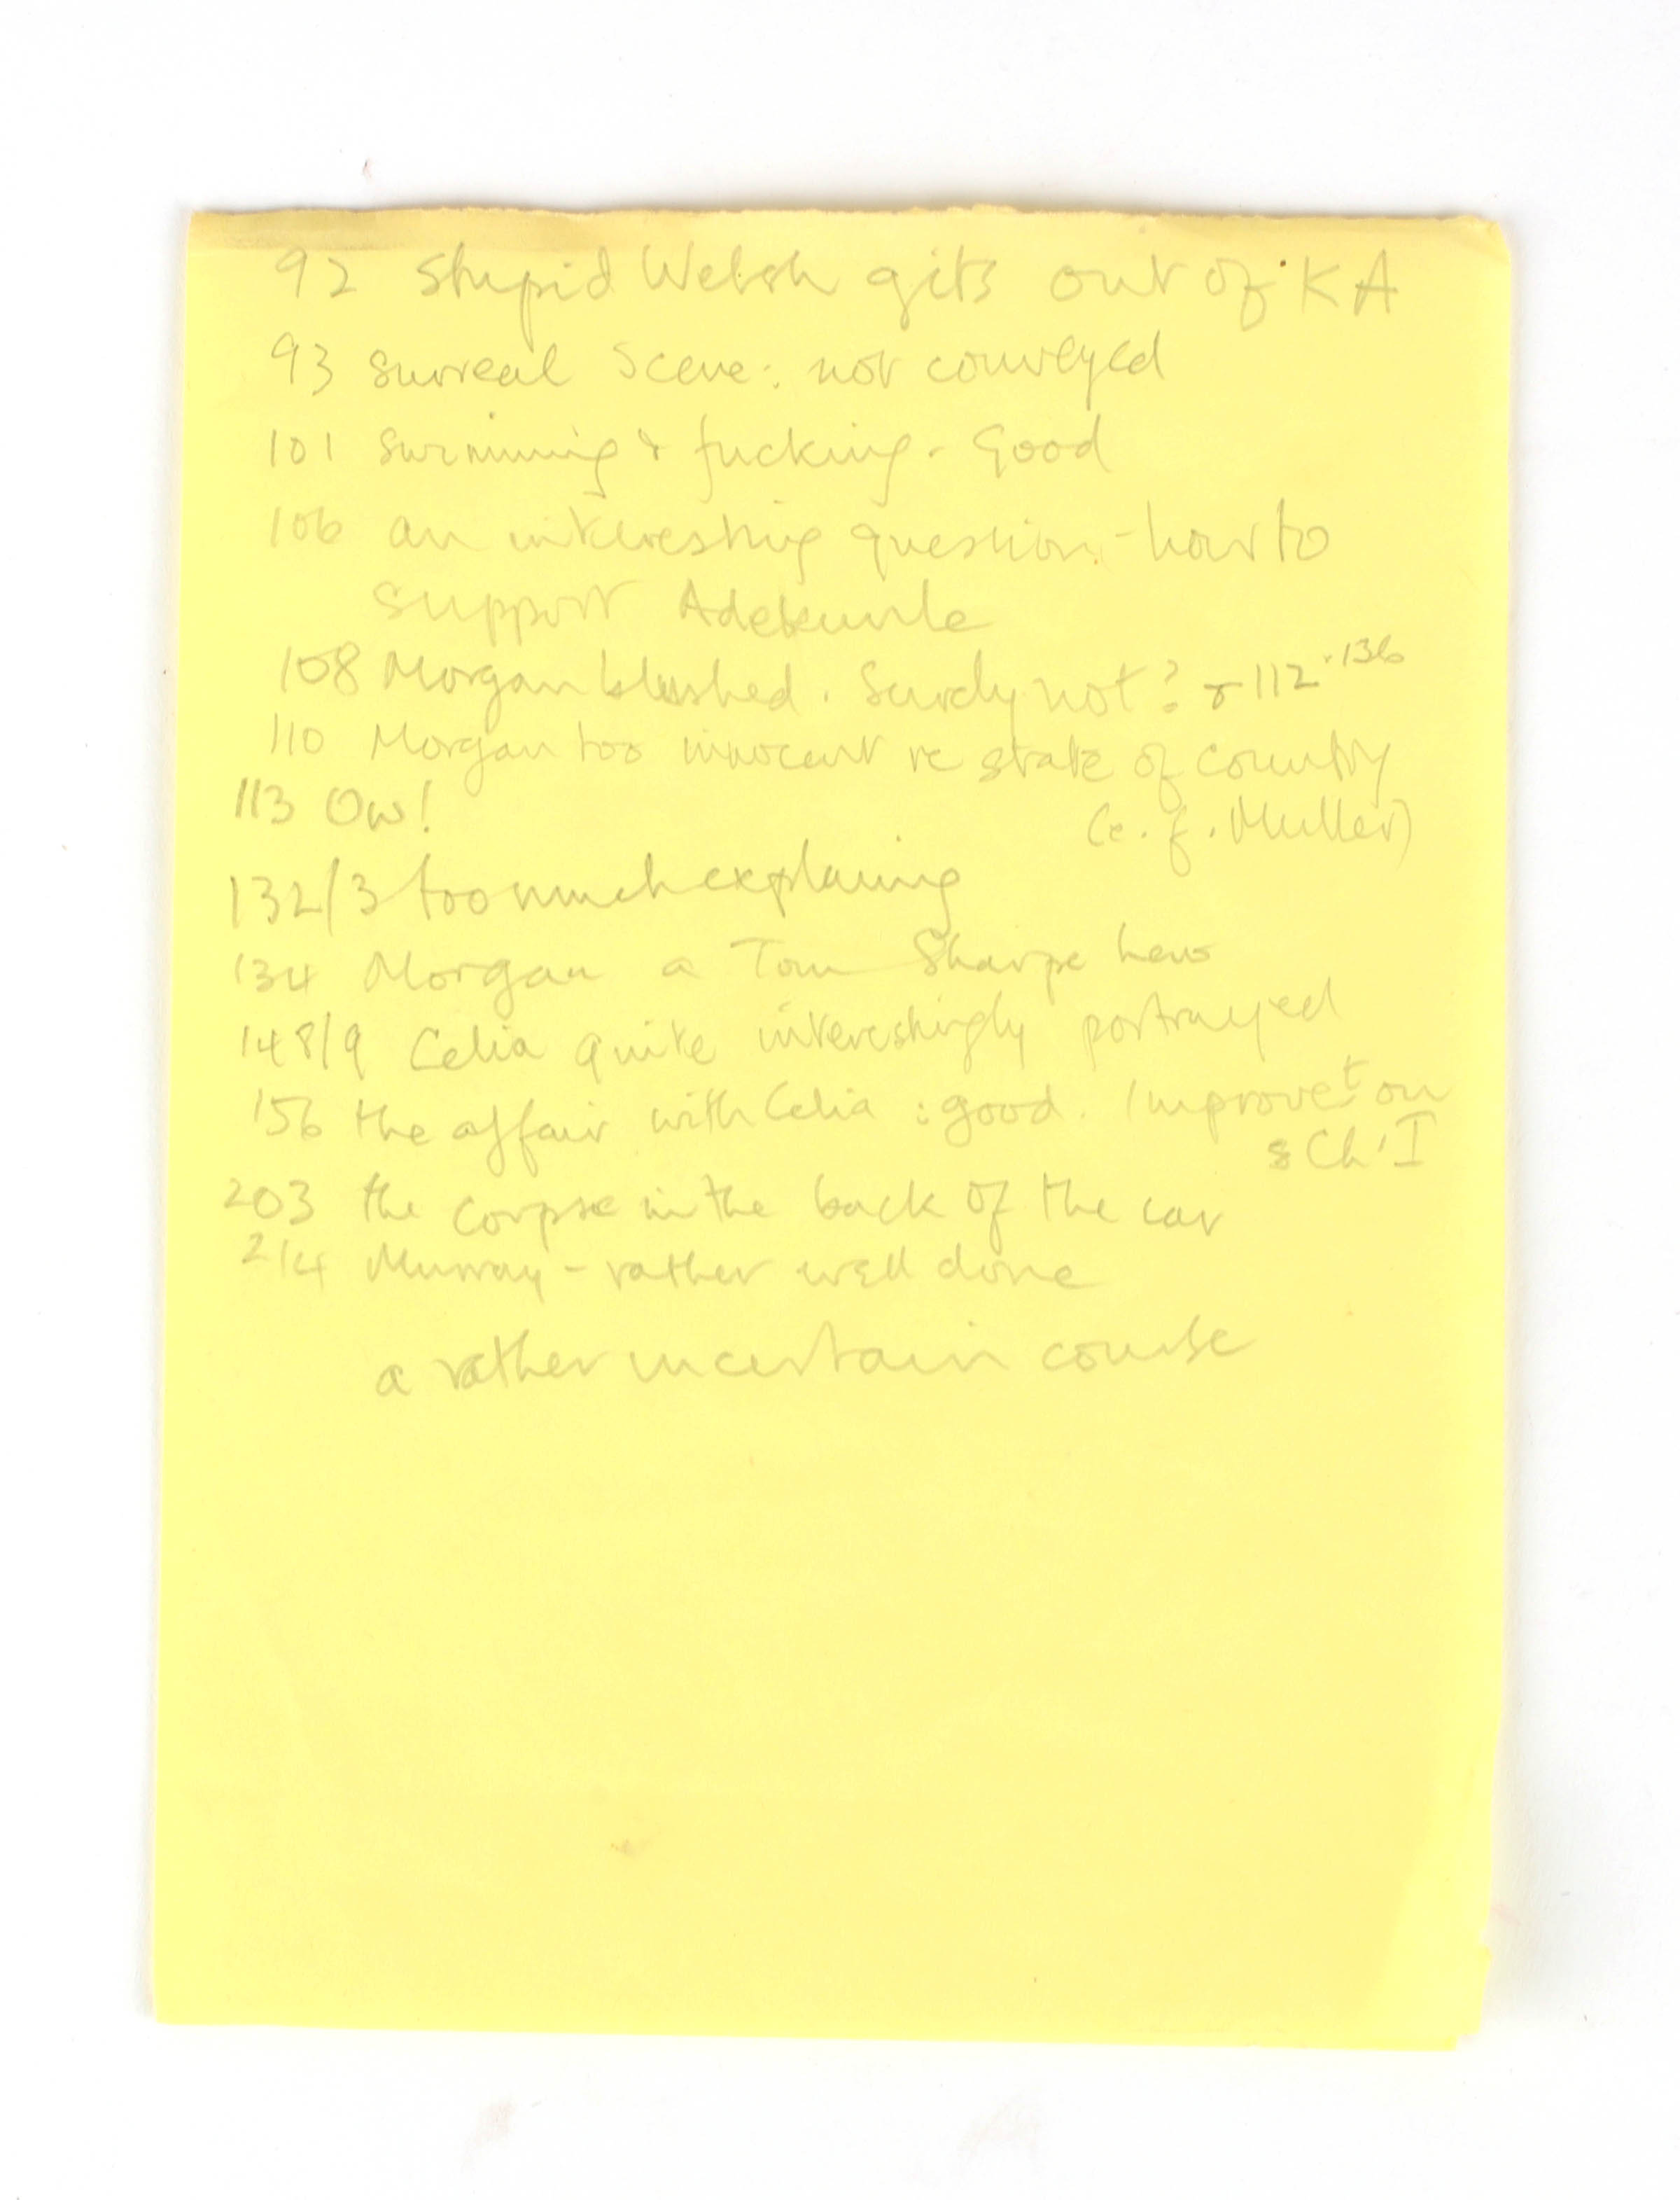 92 Stupid Welsh gits out of KA
93 Surreal Scene: not conveyed
101 Swimming & fucking. Good
106 an interesting question - how to
support Adekunle
108 Morgan blushed. Surely not? & 112 · 136
110 Morgan too innocent re state of country
(c.f. Muller)
113 Ow!
132/3 too much explaining
134 Morgan a Tom Sharpe hero
148/9 Celia quite interestingly portrayed
156 the affair with Celia: good. Improvet on
Ch I
203 the corpse in the back of the car
214 Murray - rather well done
a rather uncertain course